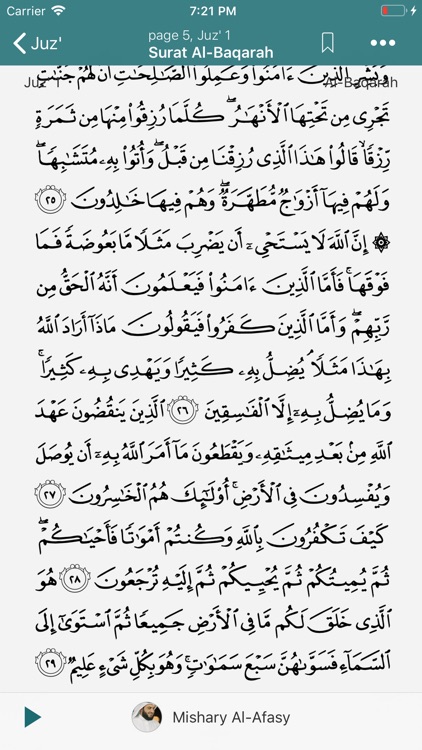 Carrier 7:21 PM
Juz' page 5, Juz' 1
Surat Al-Baqarah
وَبَشِّرِ الَّذِينَ ءَامَنُوا وَعَمِلُوا الصَّالِحَاتِ أَنَّ لَهُمْ جَنَّاتٍ
Juz' 1 Al-Baqarah
تَجْرِى مِن تَحْتِهَا الْأَنْهَارُ ۖ كُلَّمَا رُزِقُوا مِنْهَا مِن ثَمَرَةٍ
رِّزْقًا ۙ قَالُوا هَٰذَا الَّذِى رُزِقْنَا مِن قَبْلُ ۖ وَأُتُوا بِهِۦ مُتَشَابِهًا ۖ
وَلَهُمْ فِيهَآ أَزْوَاجٌ مُّطَهَّرَةٌ ۖ وَهُمْ فِيهَا خَالِدُونَ ٢٥
۞ إِنَّ اللَّهَ لَا يَسْتَحْىِۦٓ أَن يَضْرِبَ مَثَلًا مَّا بَعُوضَةً فَمَا
فَوْقَهَا ۚ فَأَمَّا الَّذِينَ ءَامَنُوا فَيَعْلَمُونَ أَنَّهُ الْحَقُّ مِن
رَّبِّهِمْ ۖ وَأَمَّا الَّذِينَ كَفَرُوا فَيَقُولُونَ مَاذَآ أَرَادَ اللَّهُ
بِهَٰذَا مَثَلًا ۘ يُضِلُّ بِهِۦ كَثِيرًا وَيَهْدِى بِهِۦ كَثِيرًا ۚ
وَمَا يُضِلُّ بِهِۦٓ إِلَّا الْفَاسِقِينَ ٢٦ الَّذِينَ يَنقُضُونَ عَهْدَ
اللَّهِ مِنۢ بَعْدِ مِيثَاقِهِۦ وَيَقْطَعُونَ مَآ أَمَرَ اللَّهُ بِهِۦٓ أَن يُوصَلَ
وَيُفْسِدُونَ فِى الْأَرْضِ ۚ أُولَٰٓئِكَ هُمُ الْخَاسِرُونَ ٢٧
كَيْفَ تَكْفُرُونَ بِاللَّهِ وَكُنتُمْ أَمْوَاتًا فَأَحْيَاكُمْ ۖ
ثُمَّ يُمِيتُكُمْ ثُمَّ يُحْيِيكُمْ ثُمَّ إِلَيْهِ تُرْجَعُونَ ٢٨ هُوَ
الَّذِى خَلَقَ لَكُم مَّا فِى الْأَرْضِ جَمِيعًا ثُمَّ اسْتَوَىٰٓ إِلَى
السَّمَآءِ فَسَوَّاهُنَّ سَبْعَ سَمَاوَاتٍ ۚ وَهُوَ بِكُلِّ شَىْءٍ عَلِيمٌ ٢٩
Mishary Al-Afasy